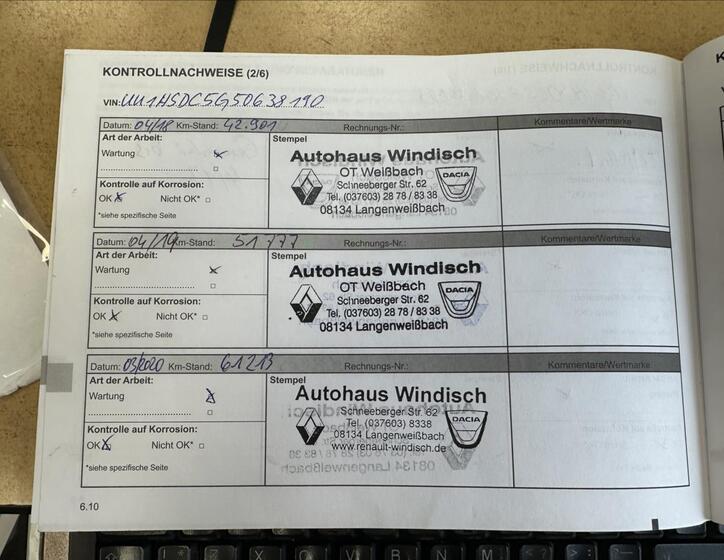 KONTROLLNACHWEISE (2/6)
VIN: UU1HSDC5G50638190
Datum: 04/18 Km-Stand: 42.901 Rechnungs-Nr.: Kommentare/Wertmarke
Art der Arbeit: Stempel
Wartung
Kontrolle auf Korrosion:
OK Nicht OK*
*siehe spezifische Seite
Autohaus Windisch
OT Weißbach
Schneeberger Str. 62
Tel. (037603) 28 78 / 83 38
08134 Langenweißbach
DACIA
Datum: 04/19 Km-Stand: 51777 Rechnungs-Nr.: Kommentare/Wertmarke
Art der Arbeit: Stempel
Wartung
Kontrolle auf Korrosion:
OK Nicht OK*
*siehe spezifische Seite
Autohaus Windisch
OT Weißbach
Schneeberger Str. 62
Tel. (037603) 28 78 / 83 38
08134 Langenweißbach
DACIA
Datum: 03/2020 Km-Stand: 61213 Rechnungs-Nr.: Kommentare/Wertmarke
Art der Arbeit: Stempel
Wartung
Kontrolle auf Korrosion:
OK Nicht OK*
*siehe spezifische Seite
Autohaus Windisch
Schneeberger Str. 62
Tel. (037603) 8338
08134 Langenweißbach
www.renault-windisch.de
DACIA
6.10